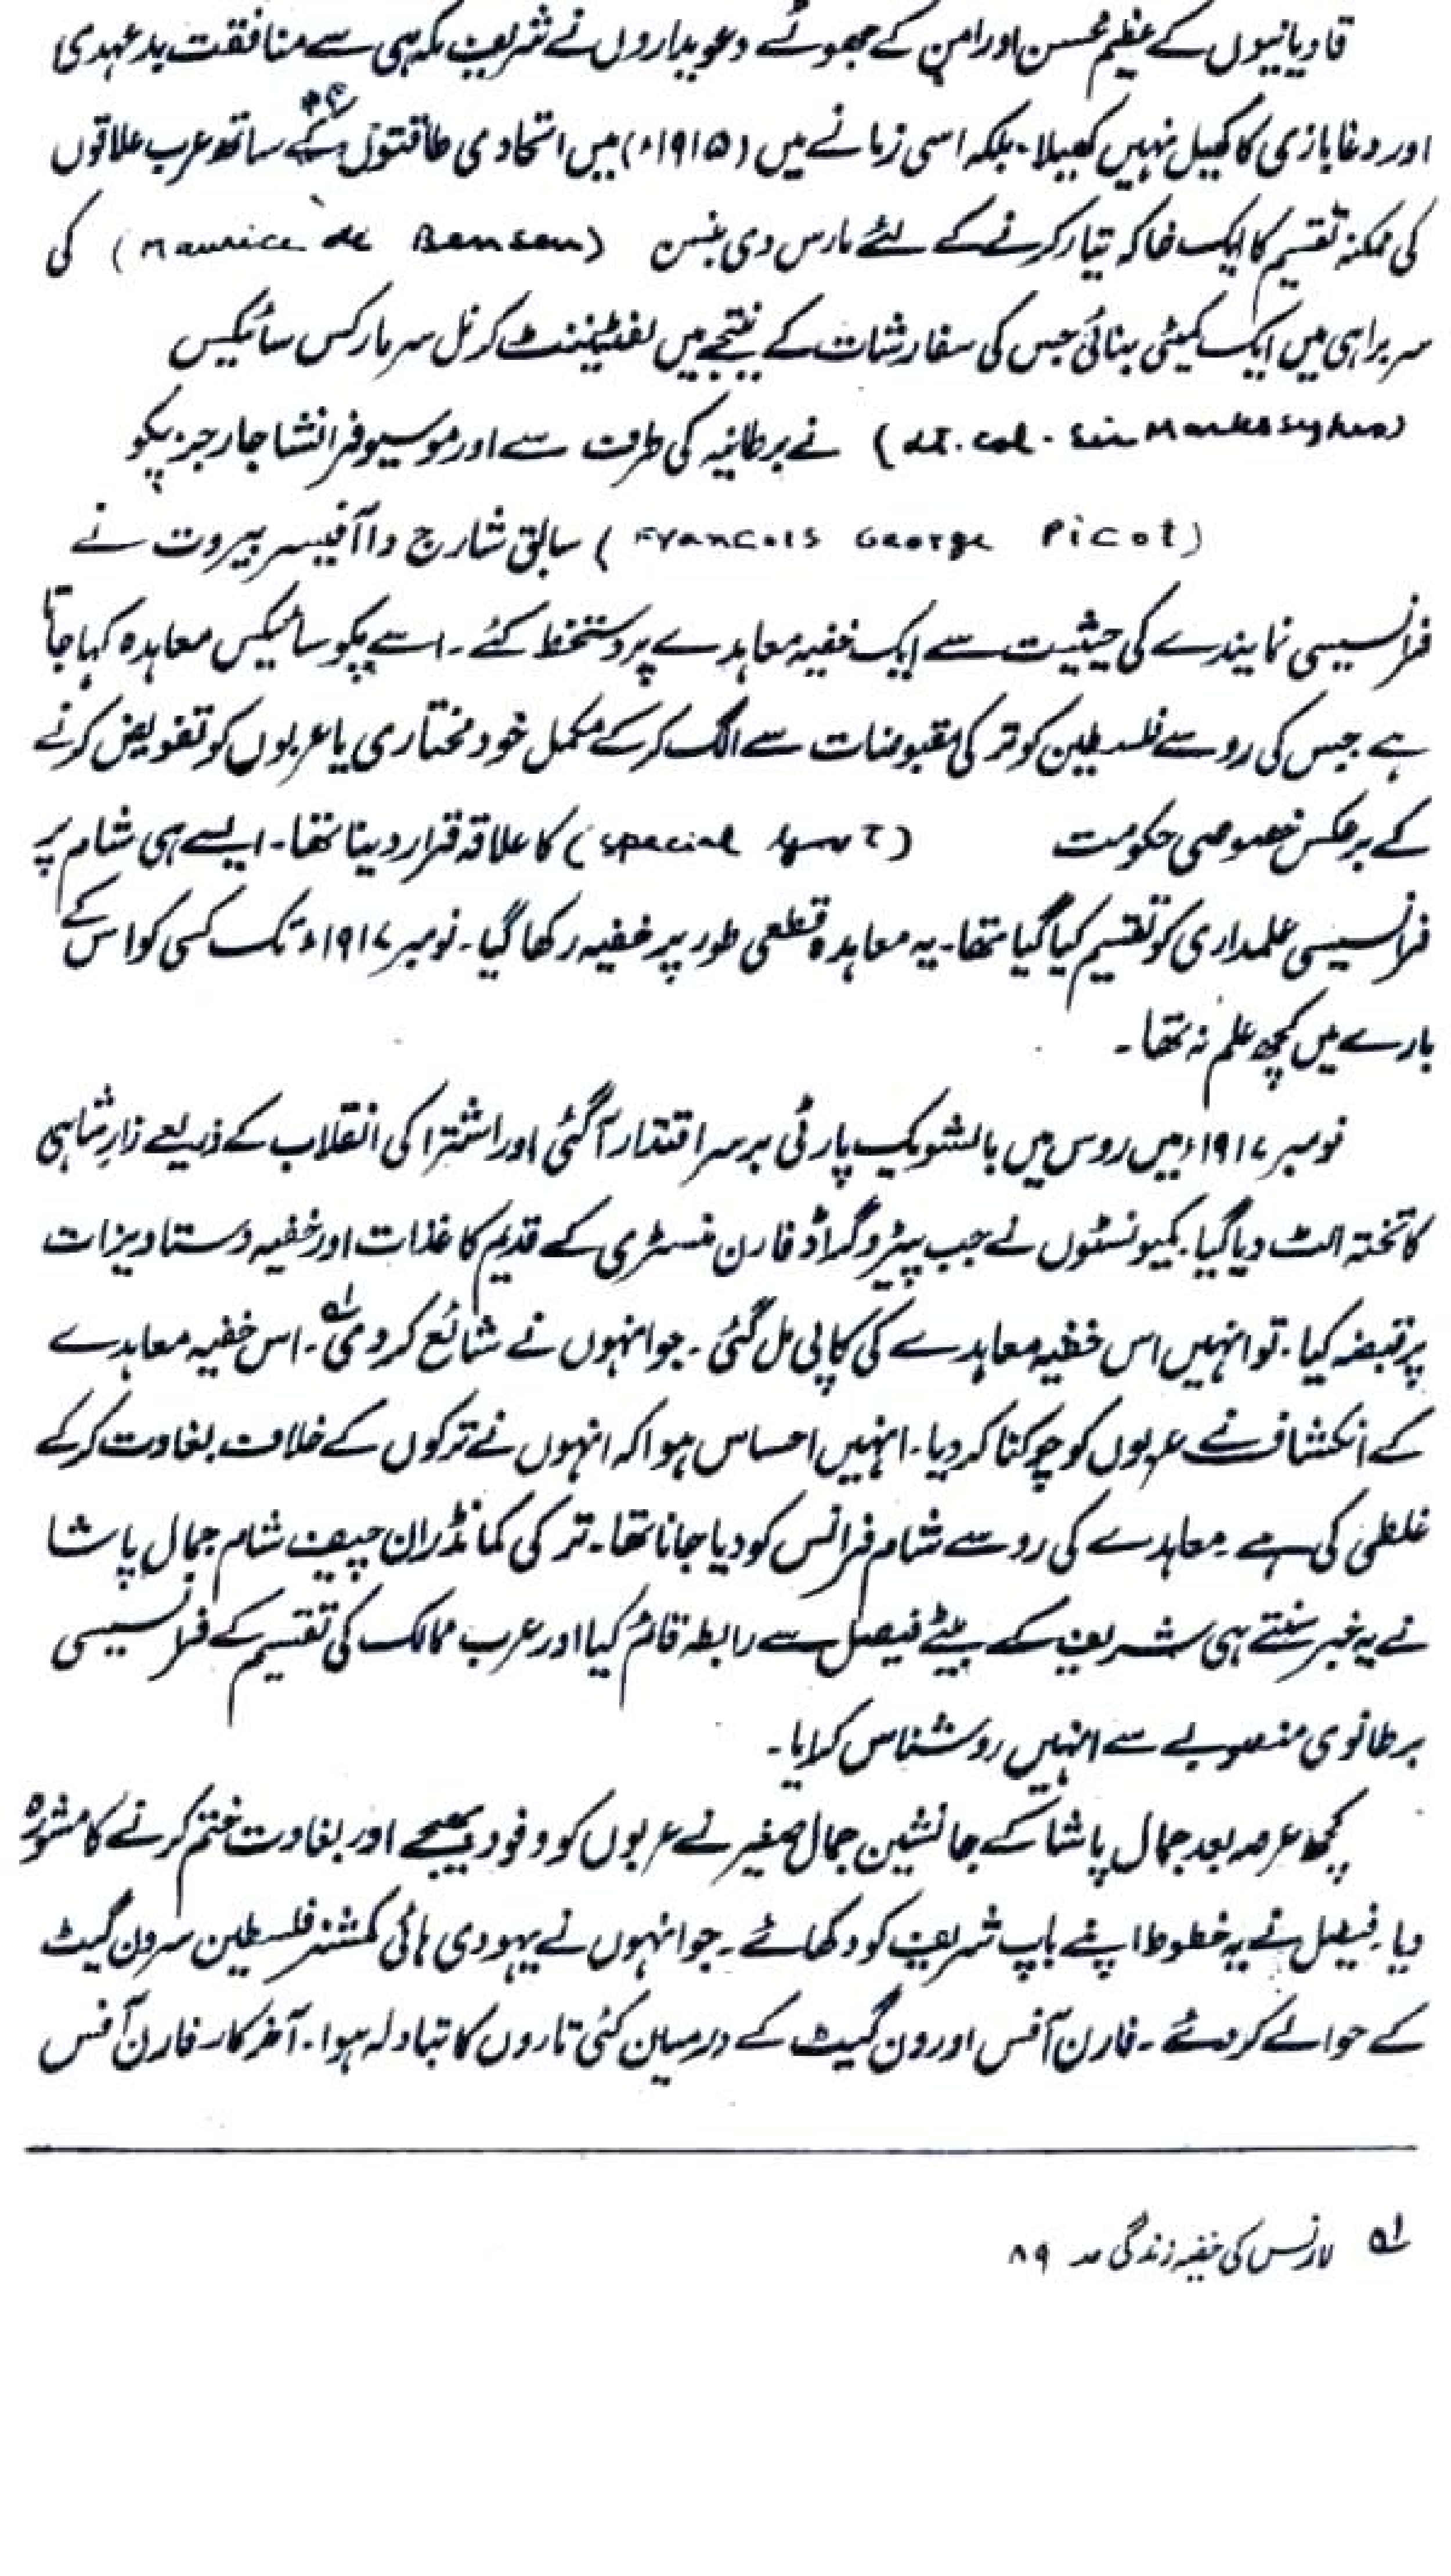 قادیانیوں کے عظیم محسن اور امن کے جھوٹے دعویداروں نے شریف مکہ ہی سے منافقت بدعہدی
اور دغابازی کا کھیل نہیں کھیلا۔ بلکہ اسی زمانے میں (۱۹۱۵ء) میں اتحادی طاقتوں کے ساتھ عرب علاقوں
کی ممکنہ تقسیم کا ایک خاکہ تیار کرنے کے لئے مارس دی بنسن (Maurice de Bensen) کی
سربراہی میں ایک کمیٹی بنائی جس کی سفارشات کے نتیجے میں لفٹیننٹ کرنل سر مارکس سائیکس
(Lt. Col. Sir Marks Sykes) نے برطانیہ کی طرف سے اور موسیو فرانشا جارجز پکو
(Francois George Picot) سابق شارج دا آفیسر بیروت نے
فرانسیسی نمایندے کی حیثیت سے ایک خفیہ معاہدے پر دستخط کئے۔ اسے پکو سائیکس معاہدہ کہا جاتا
ہے جس کی رو سے فلسطین کو ترکی مقبوضات سے الگ کر کے مکمل خود مختاری یا عربوں کو تفویض کرنے
کے برعکس خصوصی حکومت (special Govt) کا علاقہ قرار دینا تھا۔ ایسے ہی شام پر
فرانسیسی علمداری کو تقسیم کیا گیا تھا۔ یہ معاہدہ قطعی طور پر خفیہ رکھا گیا۔ نومبر ۱۹۱۷ء تک کسی کو اس کے
بارے میں کچھ علم نہ تھا۔
نومبر ۱۹۱۷ء میں روس میں بالشویک پارٹی برسر اقتدار آگئی اور اشتراکی انقلاب کے ذریعے زارِ شاہی
کا تختہ الٹ دیا گیا۔ کمیونسٹوں نے جب پیٹروگراڈ فارن منسٹری کے قدیم کاغذات اور خفیہ دستاویزات
پر قبضہ کیا۔ تو انہیں اس خفیہ معاہدے کی کاپی مل گئی۔ جو انہوں نے شائع کر دی ؁۱۔ اس خفیہ معاہدے
کے انکشاف نے عربوں کو چوکنا کر دیا۔ انہیں احساس ہوا کہ انہوں نے ترکوں کے خلاف بغاوت کر کے
غلطی کی ہے۔ معاہدے کی رو سے شام فرانس کو دیا جانا تھا۔ ترکی کمانڈر ان چیف شام جمال پاشا
نے یہ خبر سنتے ہی شریف کے بیٹے فیصل سے رابطہ قائم کیا اور عرب ممالک کی تقسیم کے فرانسیسی
برطانوی منصوبے سے انہیں روشناس کرایا۔
کچھ عرصہ بعد جمال پاشا کے جانشین جمال صغیر نے عربوں کو وفود بھیجے اور بغاوت ختم کرنے کا مشورہ
دیا۔ فیصل نے یہ خطوط اپنے باپ شریف کو دکھائے۔ جو انہوں نے یہودی ہائی کمشنر فلسطین سر ون گیٹ
کے حوالے کر دئے۔ فارن آفس اور ون گیٹ کے درمیان کئی تاروں کا تبادلہ ہوا۔ آخر کار فارن آفس
؁۱ لارنس کی خفیہ زندگی صہ ۸۹